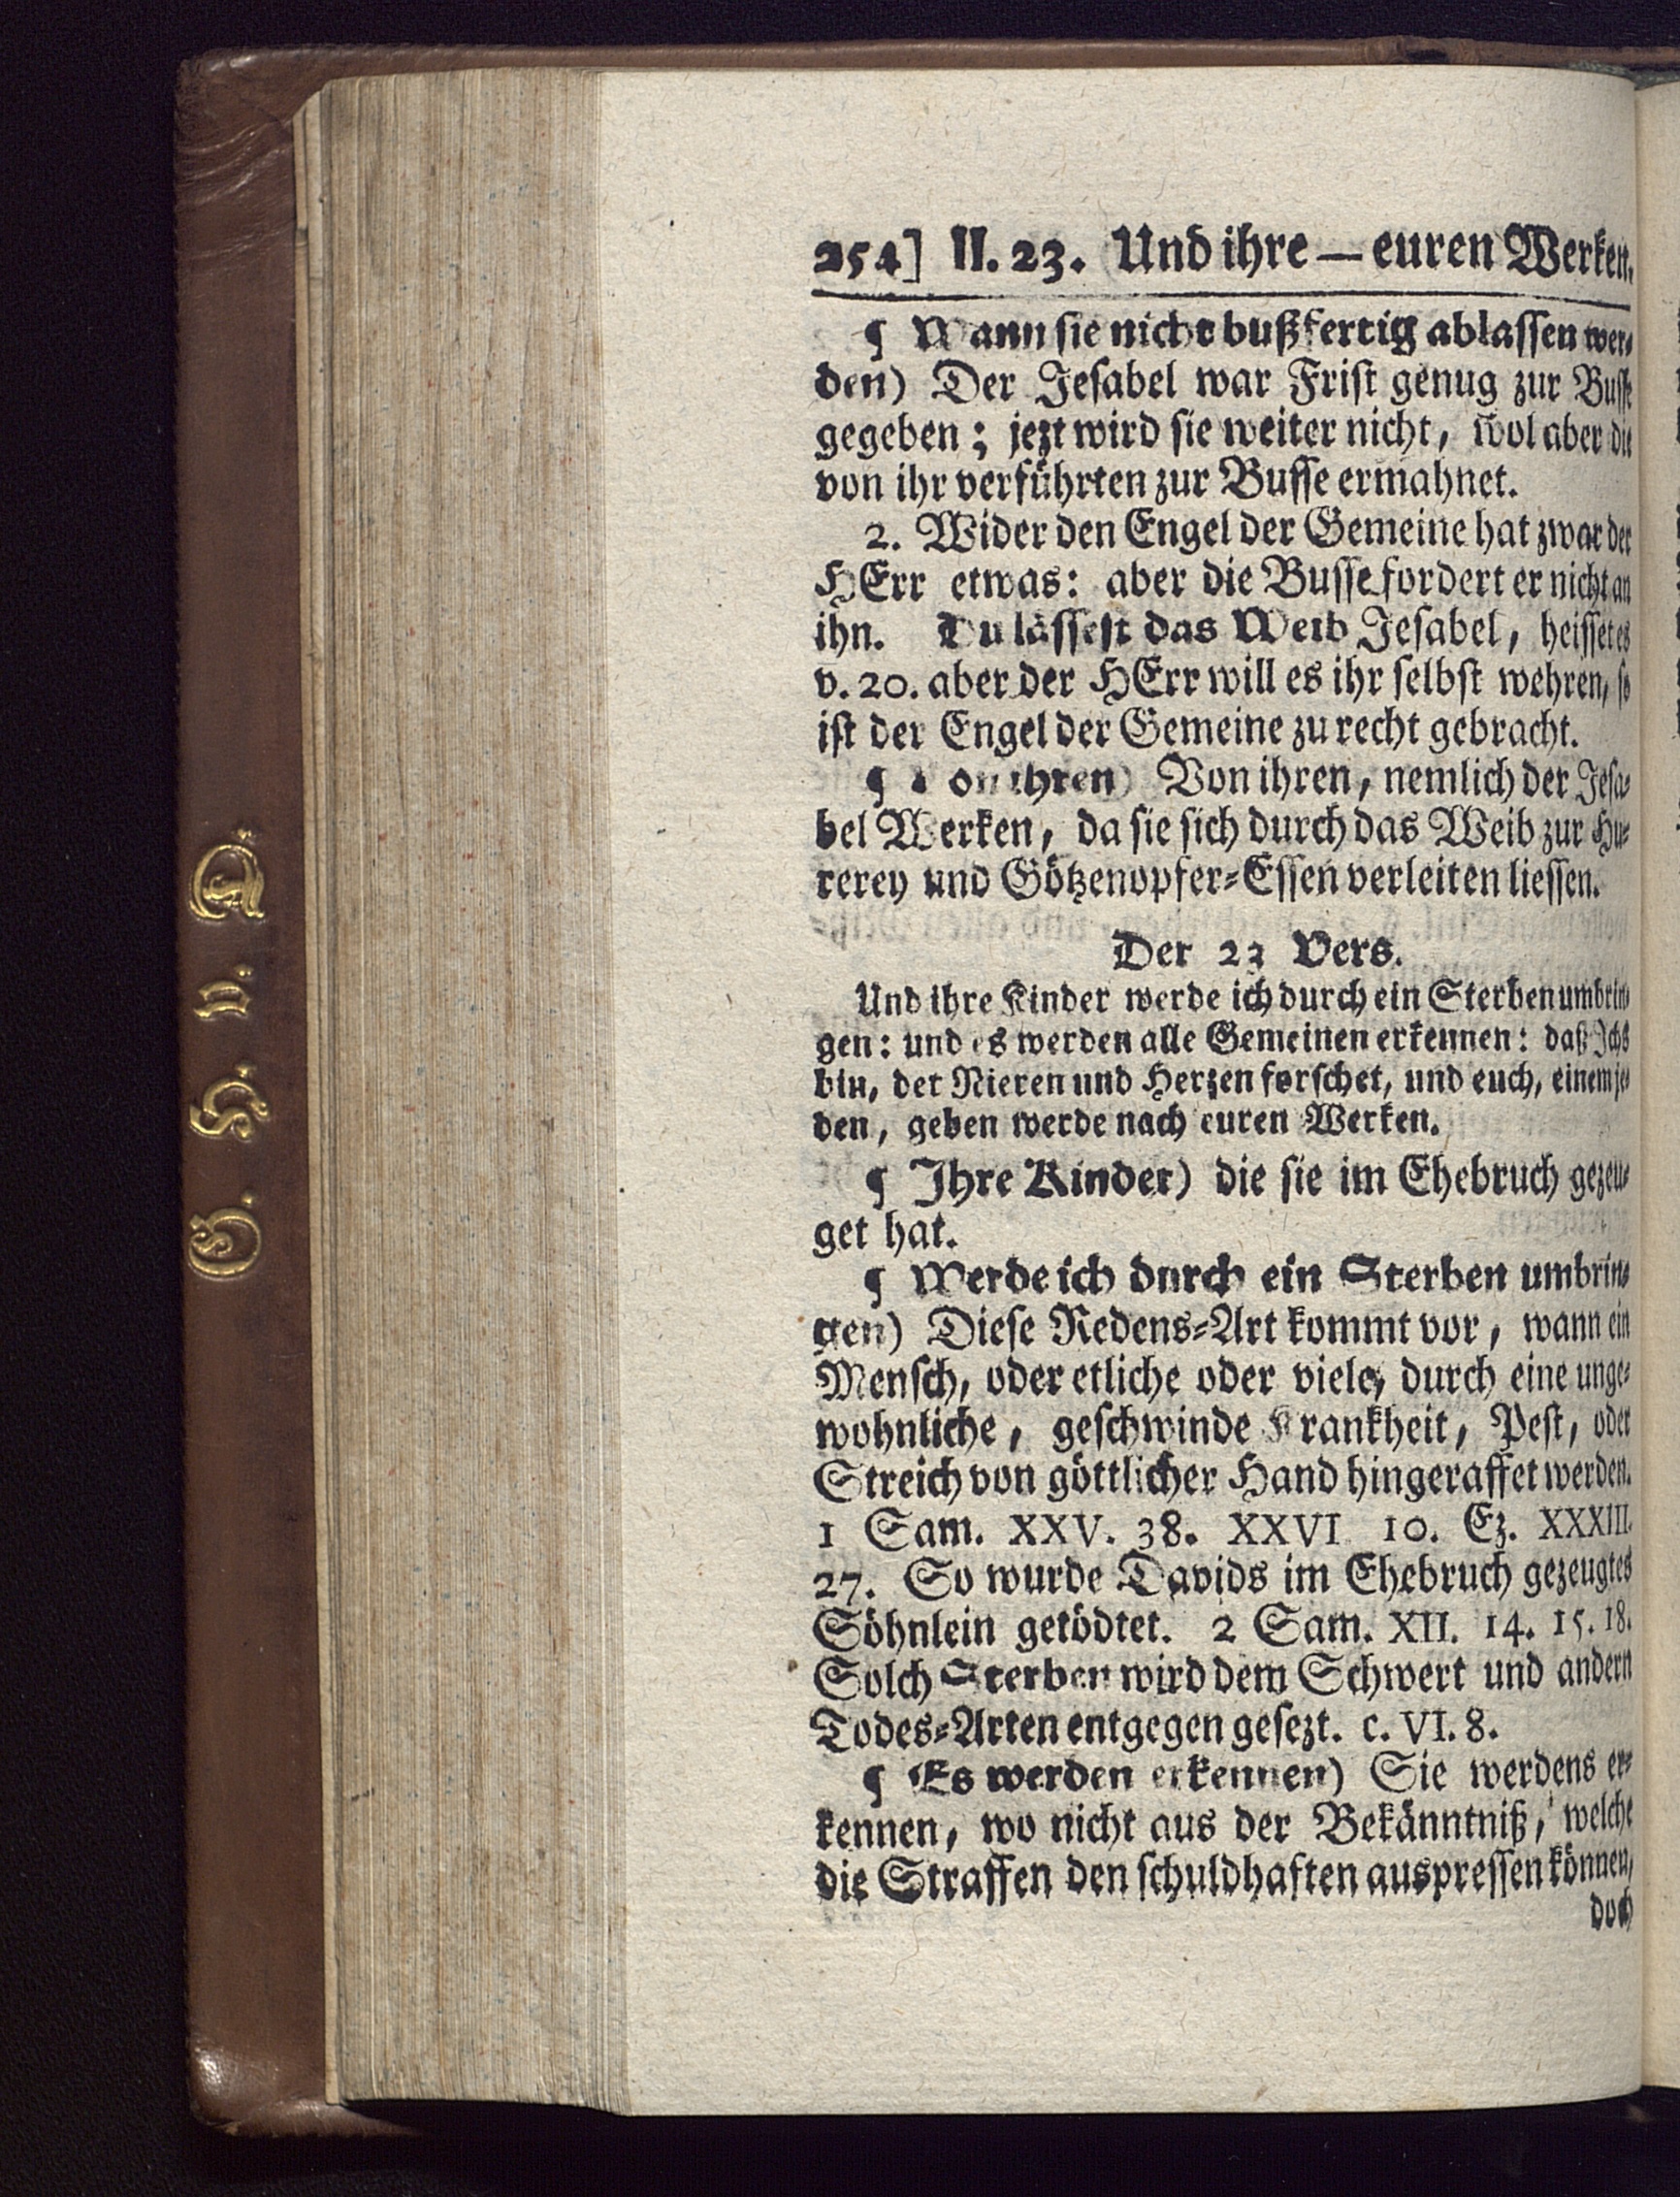 254] II. 23. Und ihre — euren Werken.
¶ Wann sie nicht bußfertig ablassen wer-
den) Der Jesabel war Frist genug zur Busse
gegeben; jezt wird sie weiter nicht, wol aber die
von ihr verführten zur Busse ermahnet.
2. Wider den Engel der Gemeine hat zwar der
HErr etwas: aber die Busse fordert er nicht an
ihn. Du lässest das Weib Jesabel, heisset es
v. 20. aber der HErr will es ihr selbst wehren, so
ist der Engel der Gemeine zu recht gebracht.
¶ Von ihren) Von ihren, nemlich der Jesa-
bel Werken, da sie sich durch das Weib zur Hu-
rerey und Götzenopfer-Essen verleiten liessen.
Der 23 Vers.
Und ihre Kinder werde ich durch ein Sterben umbrin-
gen: und es werden alle Gemeinen erkennen: daß Ichs
bin, der Nieren und Herzen forschet, und euch, einem je-
den, geben werde nach euren Werken.
¶ Ihre Kinder) die sie im Ehebruch gezeu-
get hat.
¶ Werde ich durch ein Sterben umbrin-
gen) Diese Redens-Art kommt vor, wann ein
Mensch, oder etliche oder viele, durch eine unge-
wohnliche, geschwinde Krankheit, Pest, oder
Streich von göttlicher Hand hingeraffet werden.
1 Sam. XXV. 38. XXVI 10. Ez. XXXIII.
27. So wurde Davids im Ehebruch gezeugtes
Söhnlein getödtet. 2 Sam. XII. 14. 15. 18.
Solch Sterben wird dem Schwert und andern
Todes-Arten entgegen gesezt. c. VI. 8.
¶ Es werden erkennen) Sie werdens er-
kennen, wo nicht aus der Bekänntniß, welche
die Straffen den schuldhaften auspressen können,
doch
G. H. v. A.